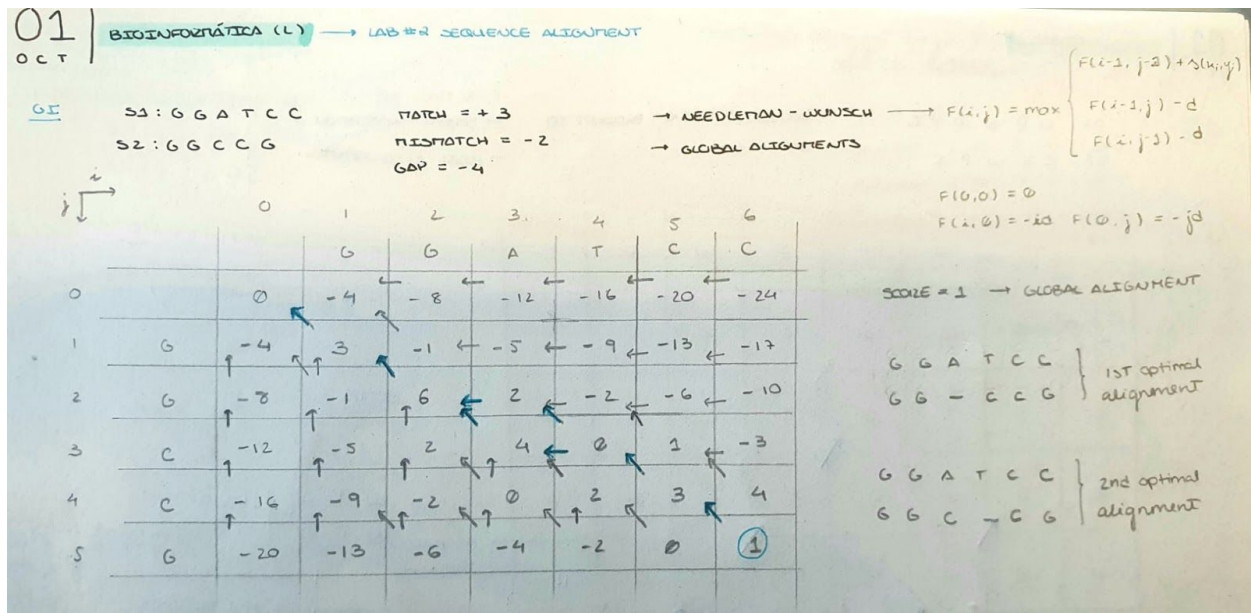 01
OCT
BIOINFORMÁTICA (L) → LAB #2 SEQUENCE ALIGNMENT
G1
S1: G G A T C C
S2: G G C C G
MATCH = +3
MISMATCH = -2
GAP = -4
→ NEEDLEMAN - WUNSCH → F(i,j) = max
→ GLOBAL ALIGNMENTS
F(i-1, j-1) + s(xi,yj)
F(i-1,j) - d
F(i,j-1) - d
F(0,0) = 0
F(i,0) = -id F(0,j) = -jd
i
j
0 1 2 3. 4 5 6
G G A T C C
0 0 -4 ← -8 ← -12 ← -16 ← -20 ← -24
1 G -4 3 -1 ← -5 ← -9 ← -13 ← -17
2 G -8 -1 6 ← 2 ← -2 ← -6 ← -10
3 C -12 -5 2 4 ← 0 1 ← -3
4 C -16 -9 -2 0 2 3 4
5 G -20 -13 -6 -4 -2 0 1
SCORE = 1 → GLOBAL ALIGNMENT
G G A T C C
G G - C C G
1ST optimal
alignment
G G A T C C
G G C - C G
2nd optimal
alignment